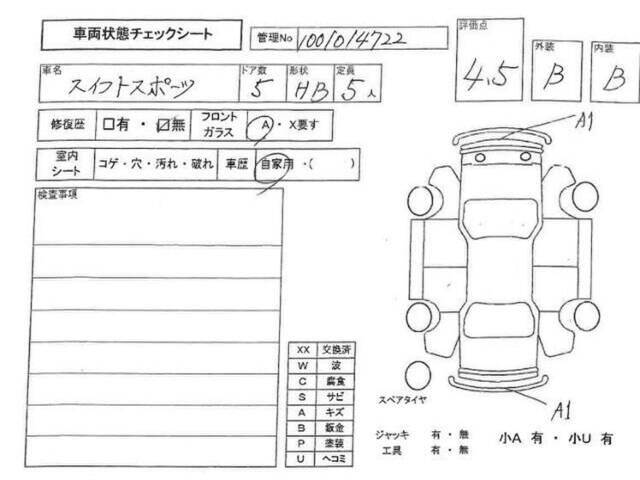 車両状態チェックシート
管理No 1001014722
評価点 4.5
外装 B
内装 B
車名 スイフトスポーツ
ドア数 5
形状 HB
定員 5人
修復歴 □有・☑無
フロントガラス A・X要す
室内シート コゲ・穴・汚れ・破れ
車歴 自家用・( )
検査事項
A1
XX 交換済
W 波
C 腐食
S サビ
A キズ
B 鈑金
P 塗装
U ヘコミ
スペアタイヤ
A1
ジャッキ 有・無
工具 有・無
小A 有・小U 有